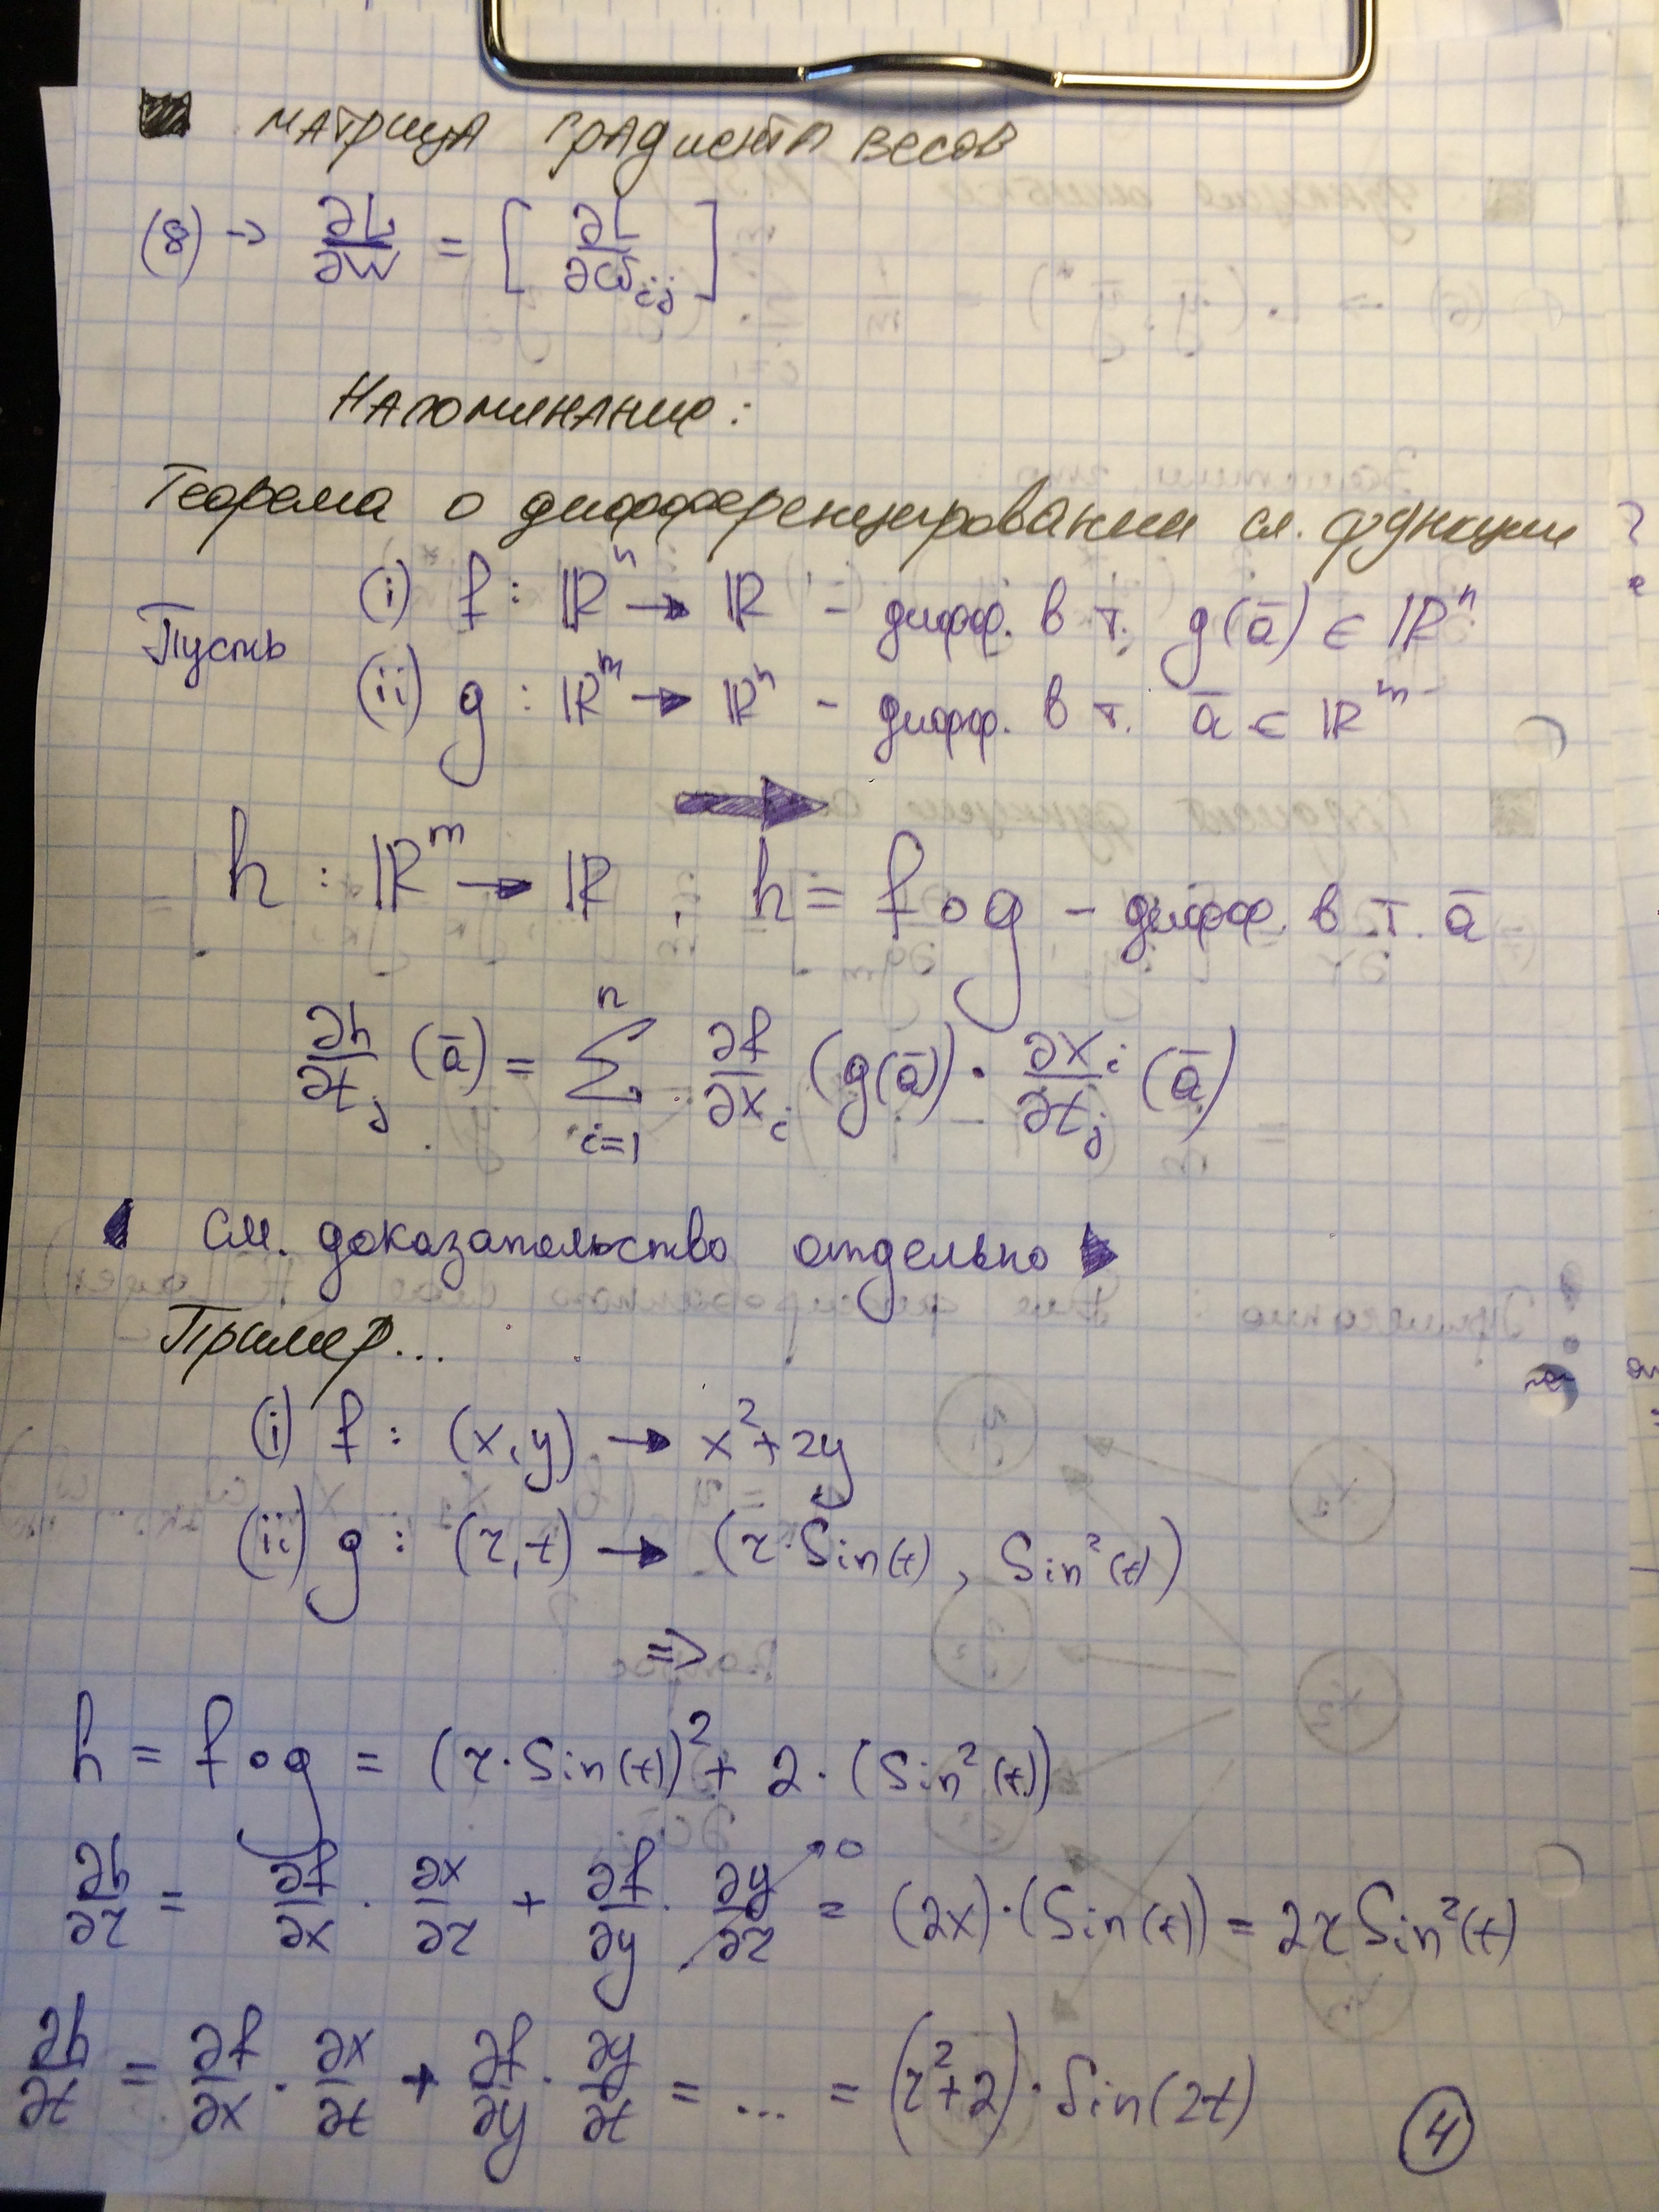 матрица градиента весов
(8) → ∂L/∂W = [ ∂L/∂ω_ij ]
Напоминание:
Теорема о дифференцировании сл. функции
(i) f : ℝⁿ → ℝ – дифф. в т. g(ā) ∈ ℝⁿ
Пусть
(ii) g : ℝᵐ → ℝⁿ – дифф. в т. ā ∈ ℝᵐ
h : ℝᵐ → ℝ , h = f ∘ g – дифф. в т. ā
∂h/∂t_j (ā) = ∑_{i=1}^{n} ∂f/∂x_i (g(ā)) · ∂x_i/∂t_j (ā)
См. доказательство отдельно
Пример...
(i) f : (x, y) → x² + 2y
(ii) g : (r, t) → (r·Sin(t) , Sin²(t))
=>
h = f ∘ g = (r·Sin(t))² + 2·(Sin²(t))
∂h/∂r = ∂f/∂x · ∂x/∂r + ∂f/∂y · ∂y/∂r → 0 = (2x)·(Sin(t)) = 2r Sin²(t)
∂h/∂t = ∂f/∂x · ∂x/∂t + ∂f/∂y · ∂y/∂t = ... = (r²+2)·Sin(2t)
4